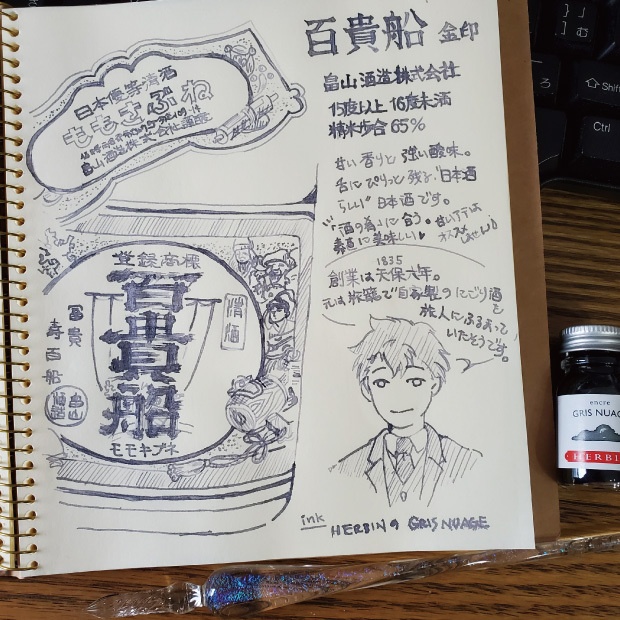 百貴船 金印
畠山酒造株式会社
15度以上 16度未満
精米歩合 65%
甘い香りと 強い酸味。
舌にぴりっと残る"日本酒
らしい"日本酒です。
素直に美味しい
1835
創業は天保六年。
元は旅籠で自家製のにごり酒を
旅人にふるまって
いたそうです。
ink HERBIN GRIS NUAGE
日本優等清酒
ももきぶね
畠山酒造株式会社
登録商標
百貴船
清酒
富貴
寿百船
畠山
酒造
モモキブネ
encre
GRIS NUAG
HERBIN
む
ろ
Shift
Ctrl